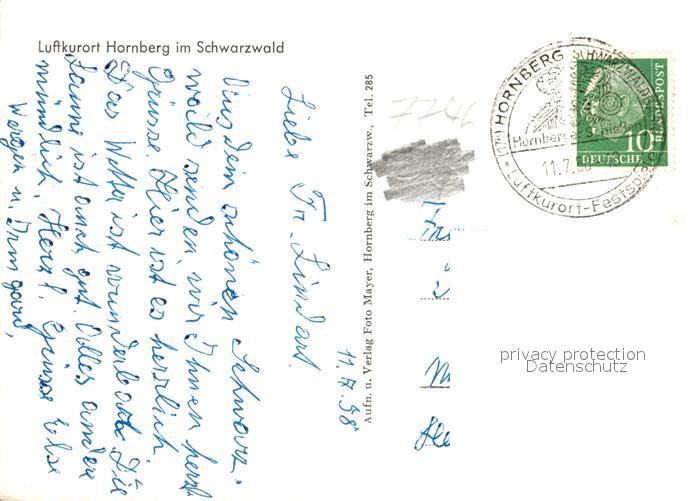 Luftkurort Hornberg im Schwarzwald
11.7.58
Liebe Fr. Lindart.
Aus dem schönen Schwarz-
wald senden wir Ihnen herzl
Grüsse. Hier ist es herrlich.
Das Wetter ist wunderbar. Die
Laune ist auch gut. Alles andere
mündlich. Herzl. Grüsse Else
u. Irmgard,
Aufn. u. Verlag Foto Mayer, Hornberg im Schwarzw., Tel. 285
HORNBERG SCHWARZWALDB
Hornberger Schieß
11.7.58
Luftkurort-Festspiel
10
DEUTSCHE
BUNDESPOST
privacy protection
Datenschutz